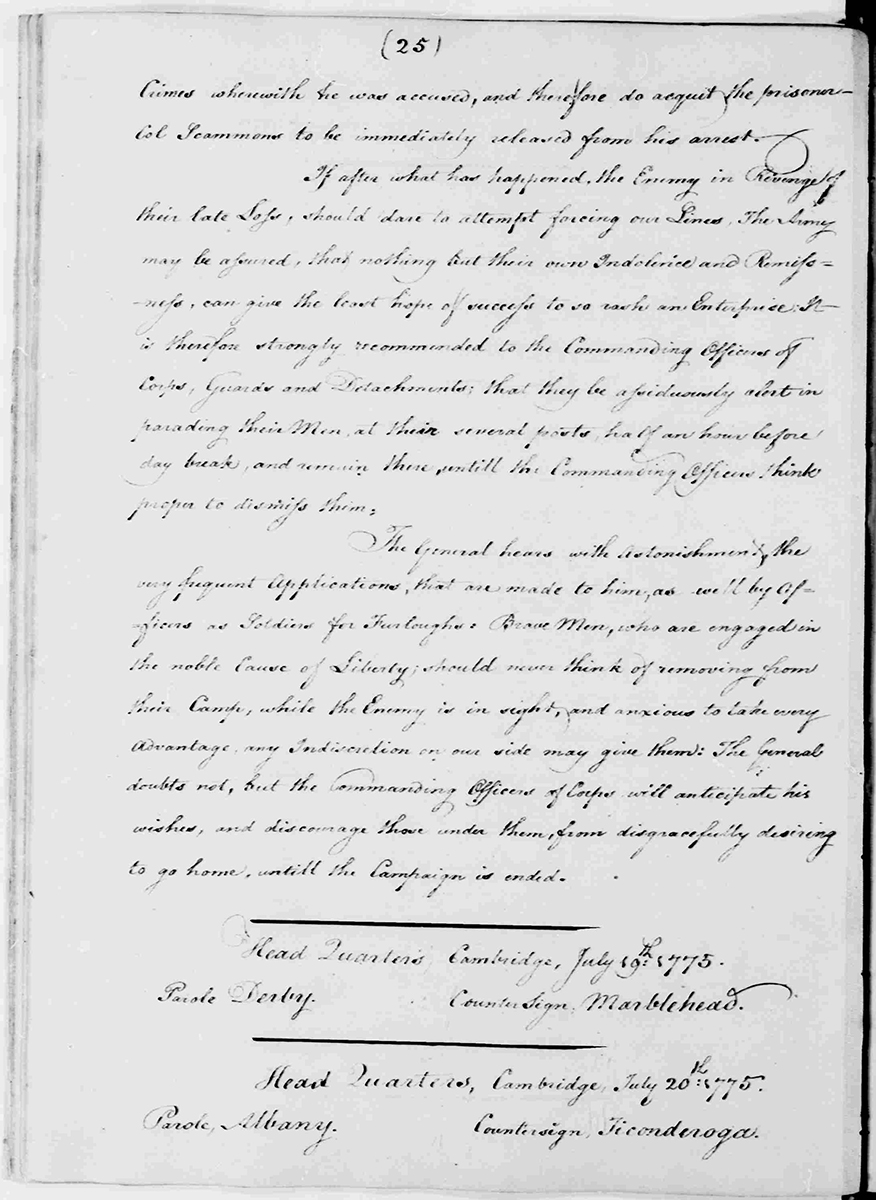 (25)
Crimes wherewith he was accused, and therefore do acquit the prisoner
Col Scammons to be immediately released from his arrest.
If after what has happened, the Enemy in Revenge of
their late Loss, should dare to attempt forcing our Lines, The Army
may be assured, that nothing but their own Indolence and Remiss=
=ness, can give the least hope of success to so rash an Enterprise: It
is therefore strongly recommended to the Commanding Officers of
Corps, Guards and Detachments; that they be assiduously alert in
parading their Men, at their several posts, half an hour before
day break, and remain there, untill the Commanding Officers think
proper to dismiss them.
The General hears with Astonishment, the
very frequent Applications, that are made to him, as well by Of=
=ficers as Soldiers for Furloughs: Brave Men, who are engaged in
the noble Cause of Liberty; should never think of removing from
their Camp, while the Enemy is in sight, and anxious to take every
Advantage, any Indiscretion on our side may give them: The General
doubts not, but the Commanding Officers of Corps will anticipate his
wishes, and discourage those under them, from disgracefully desiring
to go home, untill the Campaign is ended.
Head Quarters, Cambridge, July 19th: 1775.
Parole Derby. Countersign, Marblehead.
Head Quarters, Cambridge, July 20th: 1775.
Parole, Albany. Countersign, Ticonderoga.